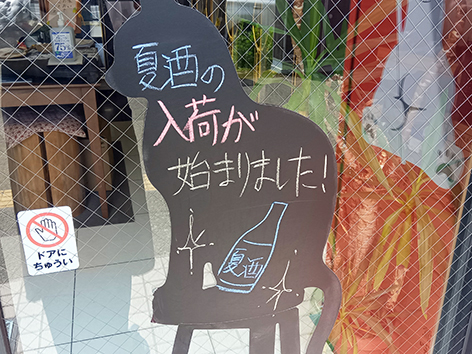 夏酒の
入荷が
始まりました!
夏酒
ドアに
ちゅうい